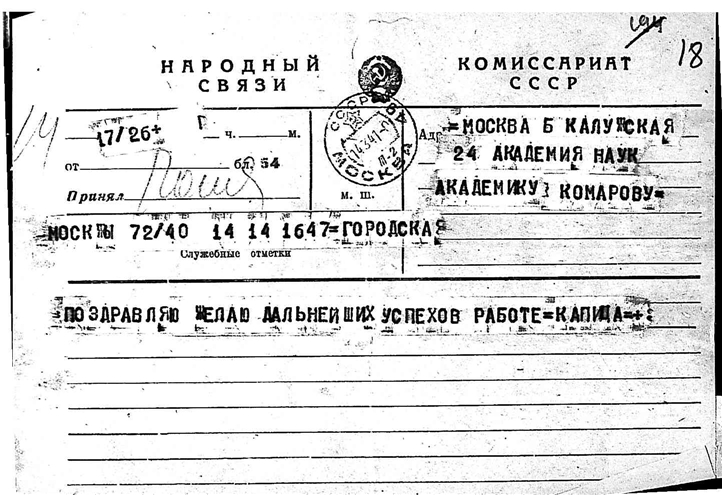 18
НАРОДНЫЙ КОМИССАРИАТ
СВЯЗИ СССР
17/26+
ч. м.
от бл. 54
Принял
м. ш.
МОСКВА
Адр.
=МОСКВА Б КАЛУЖСКАЯ
24 АКАДЕМИЯ НАУК
АКАДЕМИКУ КОМАРОВУ=
МОСКВЫ 72/40 14 14 1647=ГОРОДСКАЯ
Служебные отметки
=ПОЗДРАВЛЯЮ ЖЕЛАЮ ДАЛЬНЕЙШИХ УСПЕХОВ РАБОТЕ=КАПИЦА=+